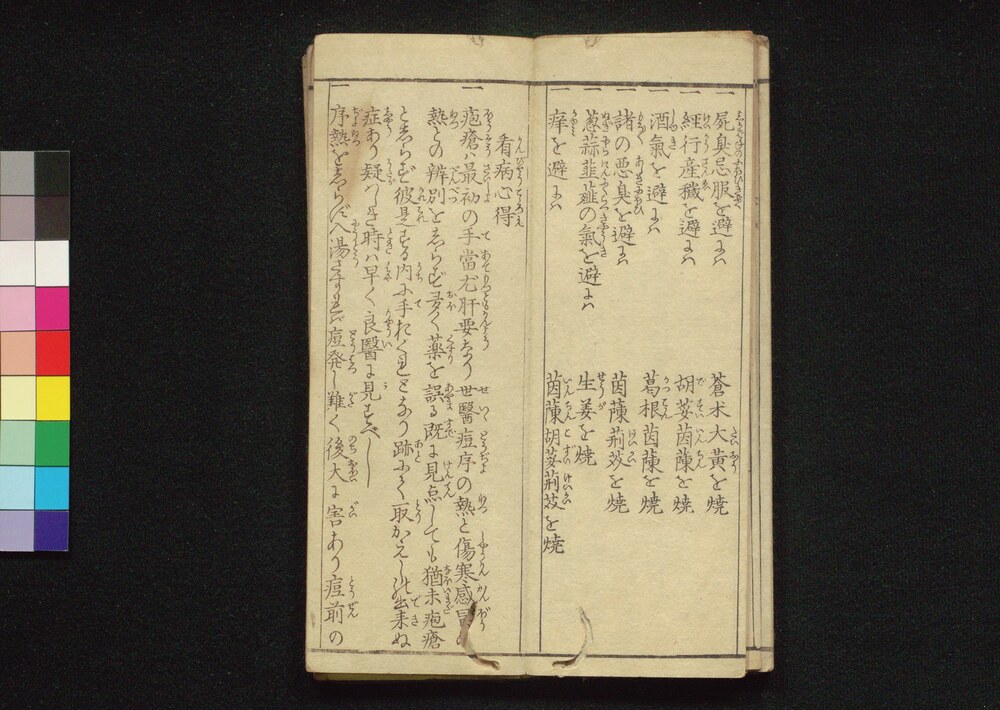 一屍臭忌服を避るには 蒼朮大黄を焼
一経行産穢を避るには 胡荽茵蔯を焼
一酒氣を避るには 葛根茵蔯を焼
一諸の悪臭を避るには 茵蔯荊芥を焼
一葱蒜韮薤の氣を避るには 生姜を焼
一痒を避るには 茵蔯胡荽荊芥を焼
看病心得
一疱瘡ハ最初の手當尤肝要なり世醫痘序の熱と傷寒感冒の
熱との辨別をしらず多く薬を誤る既に見点しても猶未疱瘡
としらず彼是する内に手おくれとなり跡にて取かえしの出来ぬ
症あり疑ハしき時ハ早く良醫に見すべし
一序熱をしらず湯さすれば痘発し難く後大に害あり痘前の